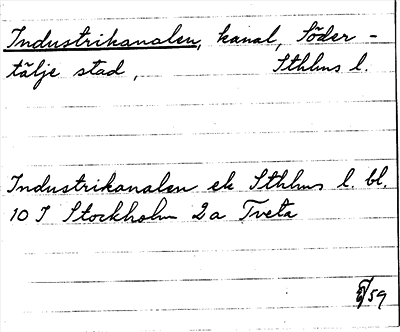 Industrikanalen, kanal, Söder-
tälje stad, Sthlms l.
Industrikanalen ek Sthlms l. bl.
10 I Stockholm 2a Tveta
/59